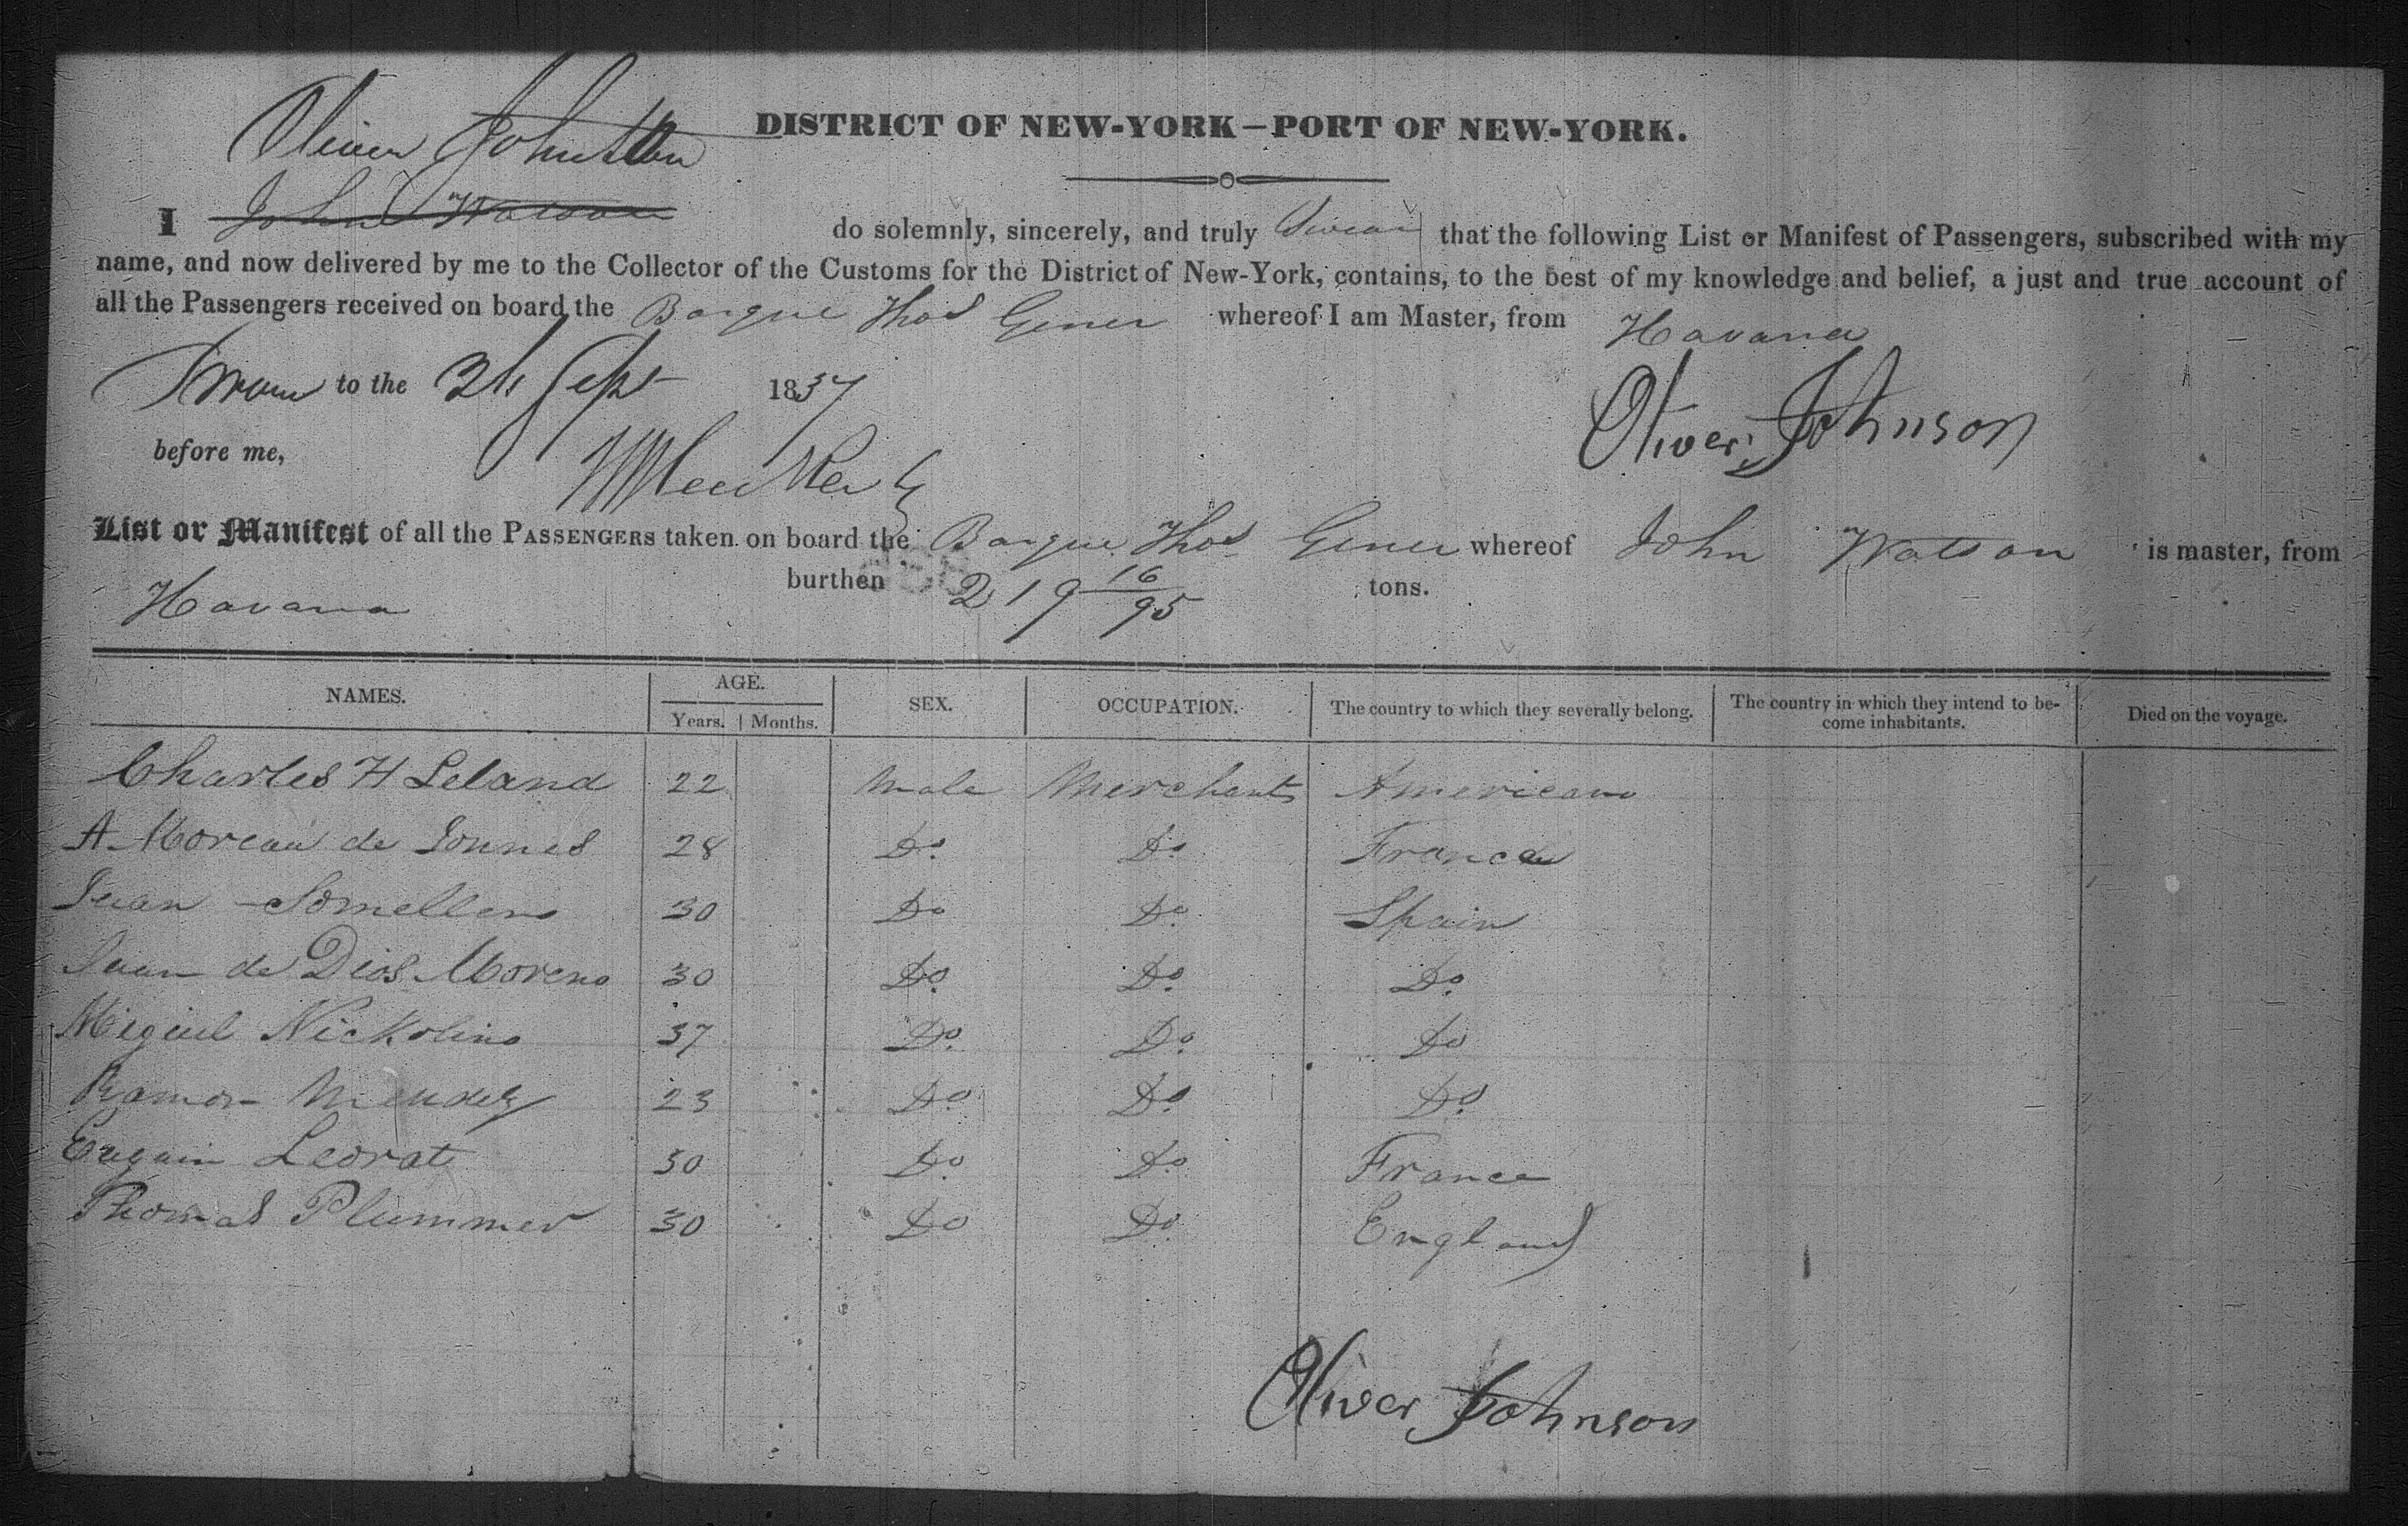 DISTRICT OF NEW-YORK—PORT OF NEW-YORK.
Oliver Johnston
I John Watson do solemnly, sincerely, and truly Swear that the following List or Manifest of Passengers, subscribed with my
name, and now delivered by me to the Collector of the Customs for the District of New-York, contains, to the best of my knowledge and belief, a just and true account of
all the Passengers received on board the Barque Thos Gener whereof I am Master, from Havana
Sworn to the Sept 1837
Oliver Johnson
before me,
List or Manifest of all the PASSENGERS taken on board the Barque Thos Gener whereof John Watson is master, from
Havana burthen 219 16/95 tons.
NAMES. AGE. Years. Months. SEX. OCCUPATION. The country to which they severally belong. The country in which they intend to become inhabitants. Died on the voyage.
Charles H Leland 22 Male Merchants Americano
A Moreau de Jonnes 28 Do. Do. France
Juan Somellens 30 Do Do. Spain
Juan de Dios Moreno 30 Do. Do. Do.
Migiul Nickolino 37 Do. Do. Do
Ramon Mendez 23 Do. Do. Do.
Leorat 30 Do. Do. France
Thomas Plummer 30 Do Do. England
Oliver Johnson